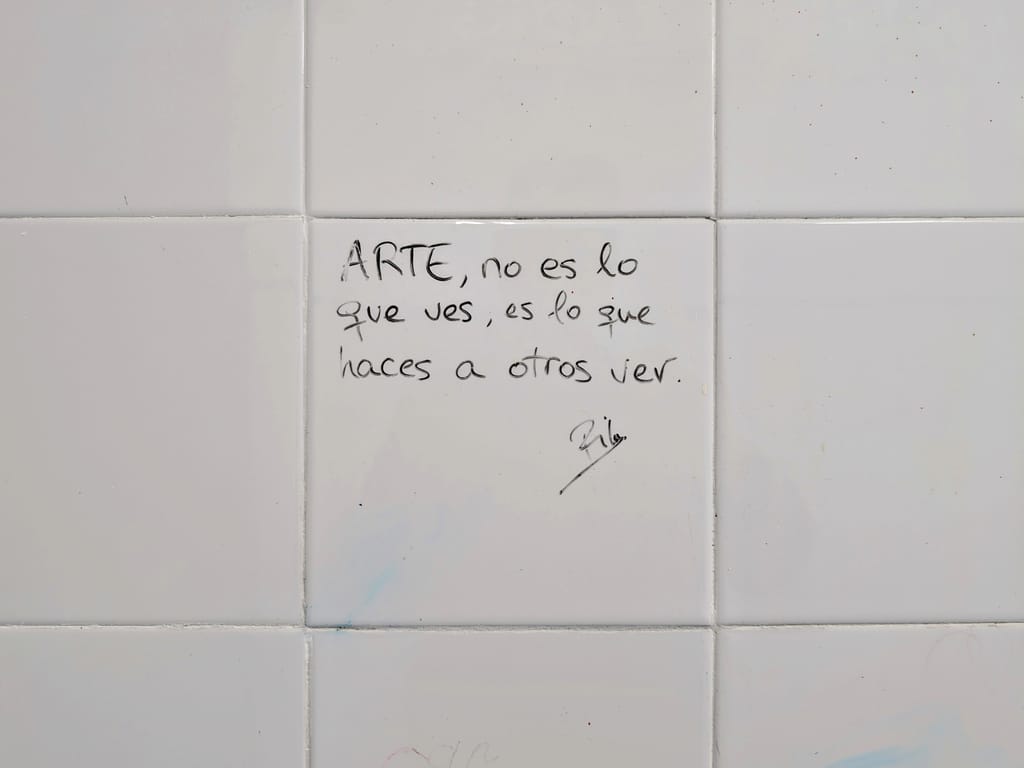 ARTE, no es lo
que ves, es lo que
haces a otros ver.